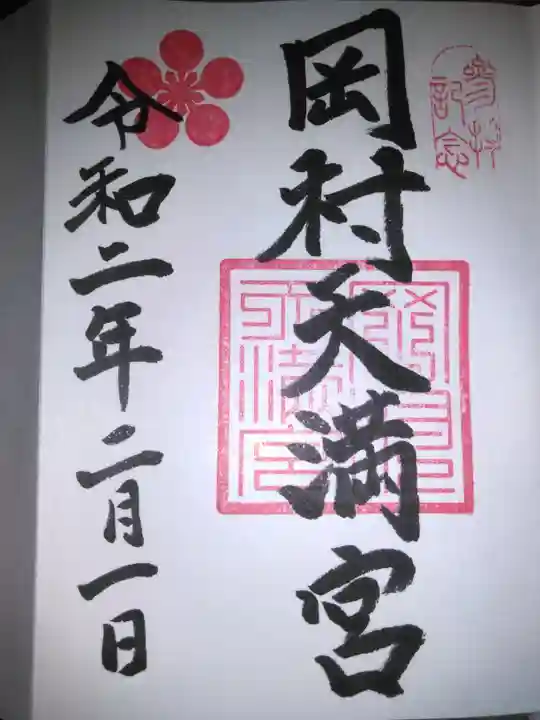 参拝記念
岡村天満宮
令和二年二月一日